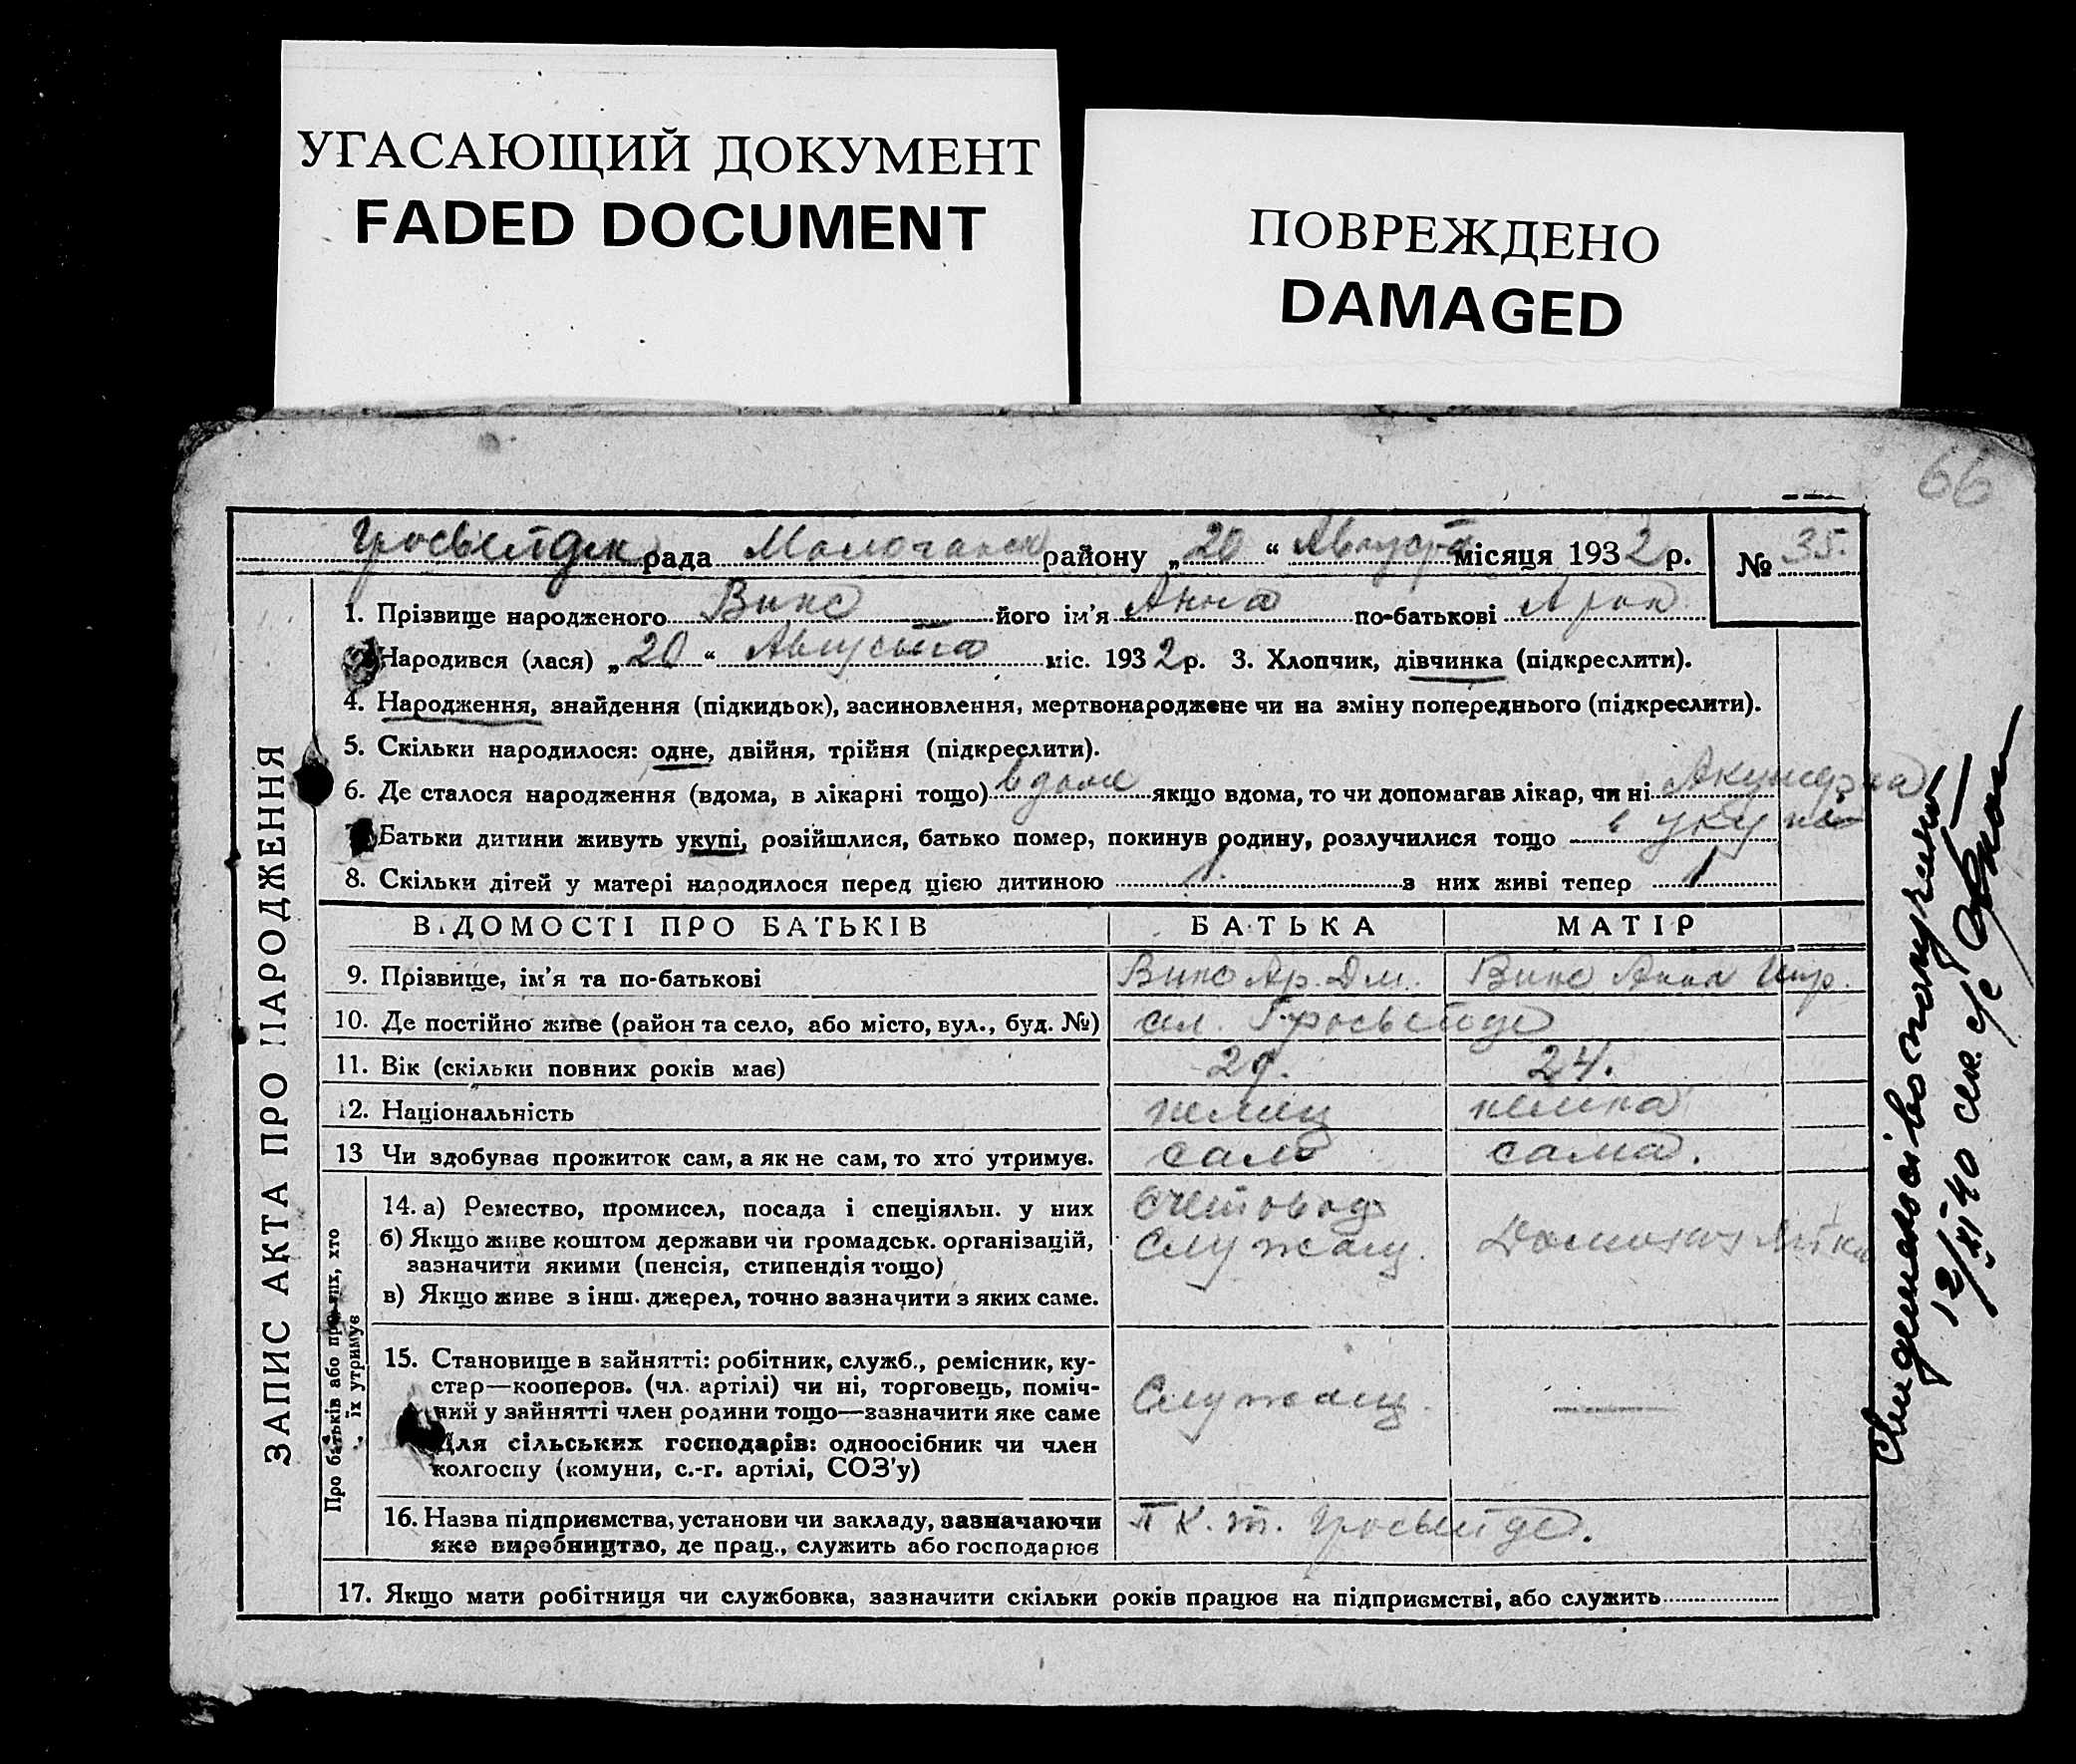 УГАСАЮЩИЙ ДОКУМЕНТ
FADED DOCUMENT
ПОВРЕЖДЕНО
DAMAGED
66
Гросвейде рада Молочанск району „20“ Августа місяця 1932 р. № 35.
ЗАПИС АКТА ПРО НАРОДЖЕННЯ
1. Прізвище народженого Винс його ім'я Анна по-батькові Арон
Народився (лася) „20“ Августа міс. 1932 р. 3. Хлопчик, дівчинка (підкреслити).
4. Народження, знайдення (підкидьок), засиновлення, мертвонароджене чи на зміну попереднього (підкреслити).
5. Скільки народилося: одне, двійня, трійня (підкреслити).
6. Де сталося народження (вдома, в лікарні тощо) вдома якщо вдома, то чи допомагав лікар, чи ні Акушерка
Батьки дитини живуть укупі, розійшлися, батько помер, покинув родину, розлучилися тощо в укупі
8. Скільки дітей у матері народилося перед цією дитиною 1. з них живі тепер 1
ВІДОМОСТІ ПРО БАТЬКІВ БАТЬКА МАТІР
9. Прізвище, ім'я та по-батькові Винс Ар. Дм. Винс Анна
10. Де постійно живе (район та село, або місто, вул., буд. №) сел. Гросвейде
11. Вік (скільки повних років має) 29. 24.
12. Національність немец немка
13 Чи здобуває прожиток сам, а як не сам, то хто утримує. сам сама.
Про батьків або про тих, хто їх утримує
14. а) Ремество, промисел, посада і спеціяльн. у них Счетовод
б) Якщо живе коштом держави чи громадськ. організацій, Служащ. Домохозяйка
зазначити якими (пенсія, стипендія тощо)
в) Якщо живе з інш. джерел, точно зазначити з яких саме.
15. Становище в зайнятті: робітник, служб., ремісник, ку-
стар—кооперов. (чл. артілі) чи ні, торговець, поміч-
ний у зайнятті член родини тощо—зазначити яке саме Служащ. —
Для сільських господарів: одноосібник чи член
колгоспу (комуни, с.-г. артілі, СОЗ'у)
16. Назва підприємства, установи чи закладу, зазначаючи П к. т. Гросвейде.
яке виробництво, де прац., служить або господарює
17. Якщо мати робітниця чи службовка, зазначити скільки років працює на підприємстві, або служить
Свидетельство получено
12/XI 40 сек. с/с